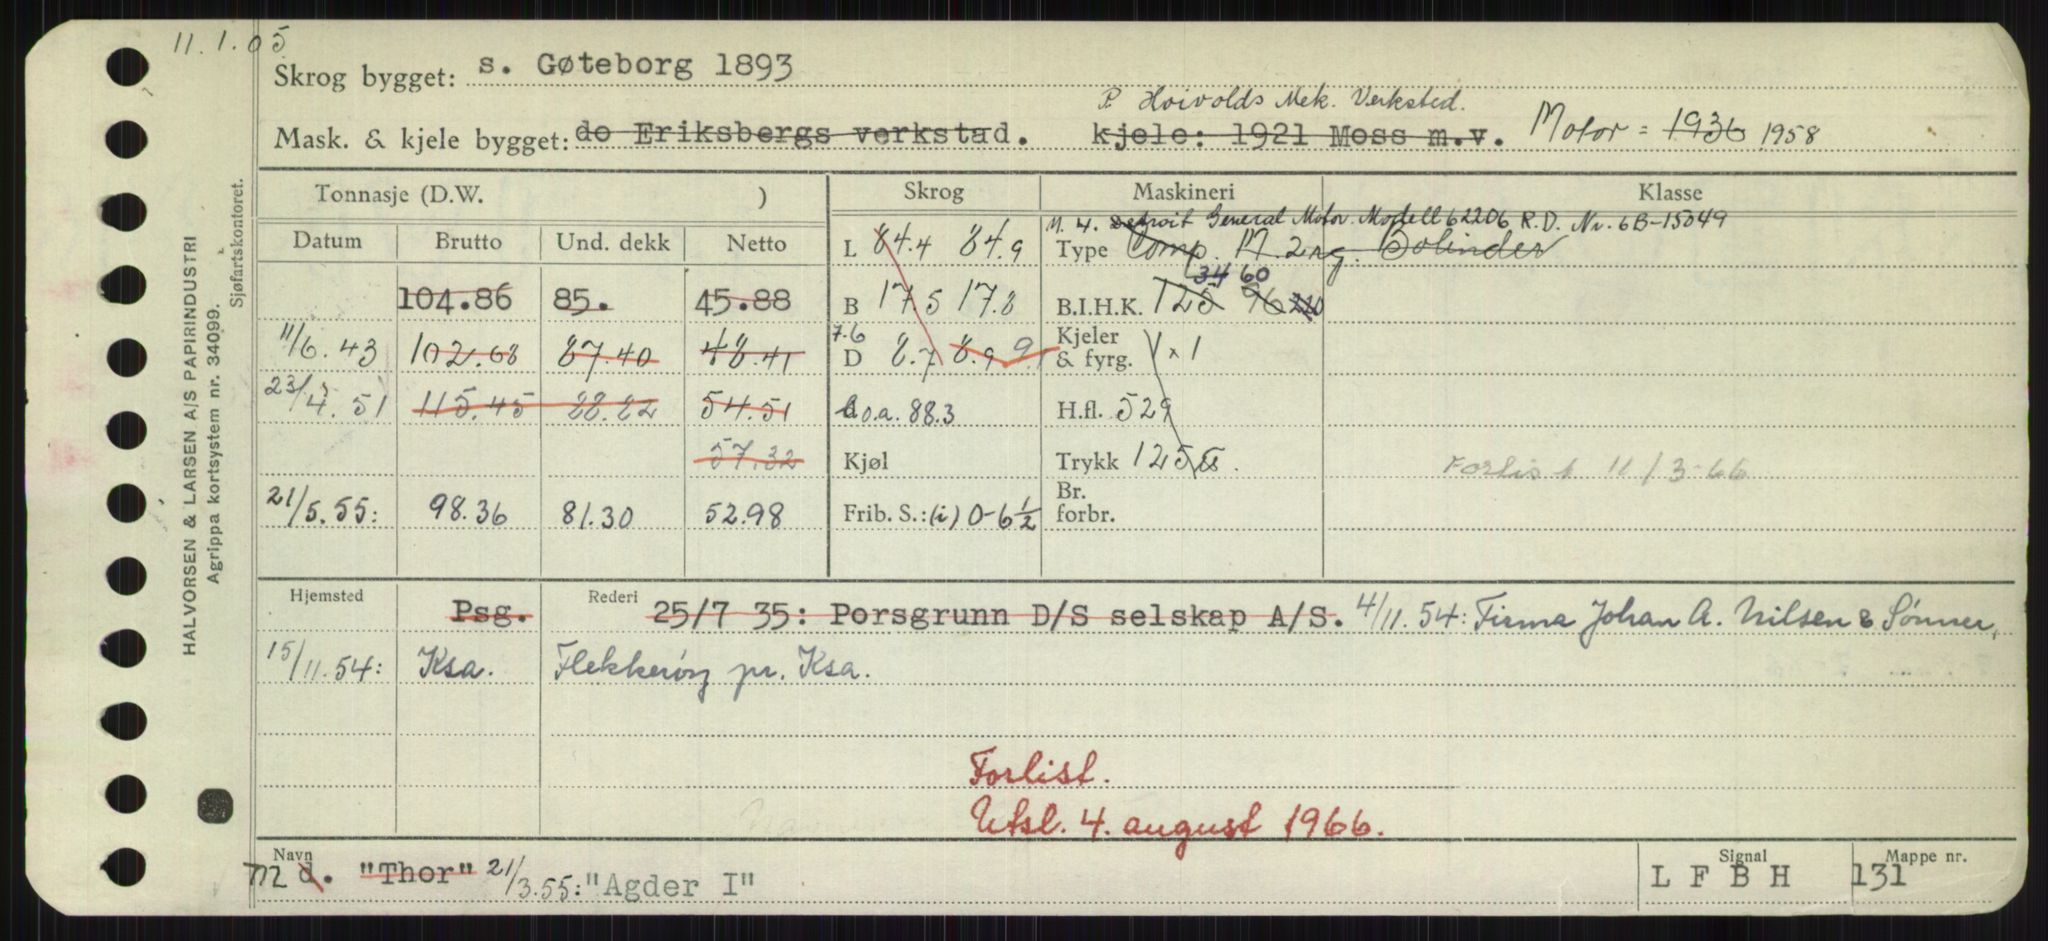 11.1.05
Skrog bygget: s. Gøteborg 1893
P. Hoivolds Mek. Verksted.
Mask. & kjele bygget: do Eriksbergs verkstad. kjele: 1921 Moss m.v. Motor = 1936 1958
Tonnasje (D.W. ) Skrog Maskineri Klasse
M. 4. Detroit General Motor. Modell 62206 R.D. Nr. 6B-15049
Datum Brutto Und. dekk Netto L 84.4 84.9 Type Comp. M. 2 rg. Bolinder
34 60
104.86 85. 45.88 B 17.5 17.8 B.I.H.K. 125 96 220
7.6
11/6.43 102.68 87.40 48.41 D 8.7 8.9 9. Kjeler & fyrg. 1 x 1
23/4.51 115.45 88.82 54.51 L o.a. 88.3 H.fl. 529
57.32 Kjøl Trykk 125 Forlist 11/3-66
21/5.55: 98.36 81.30 52.98 Frib. S.: (i) 0-6 1/2 Br. forbr.
Hjemsted Psg. Rederi 25/7 35: Porsgrunn D/S selskap A/S. 4/11.54: Firma Johan A. Nilsen & Sønner,
15/11.54: Ksa. Flekkerøy pr. Ksa.
Forlist.
Utsl. 4. august 1966.
Navn Signal Mappe nr.
m d. "Thor" 21/3.55: "Agder I" L F B H 131
HALVORSEN & LARSEN A/S PAPIRINDUSTRI
Agrippa kortsystem nr. 34099.
Sjøfartskontoret.